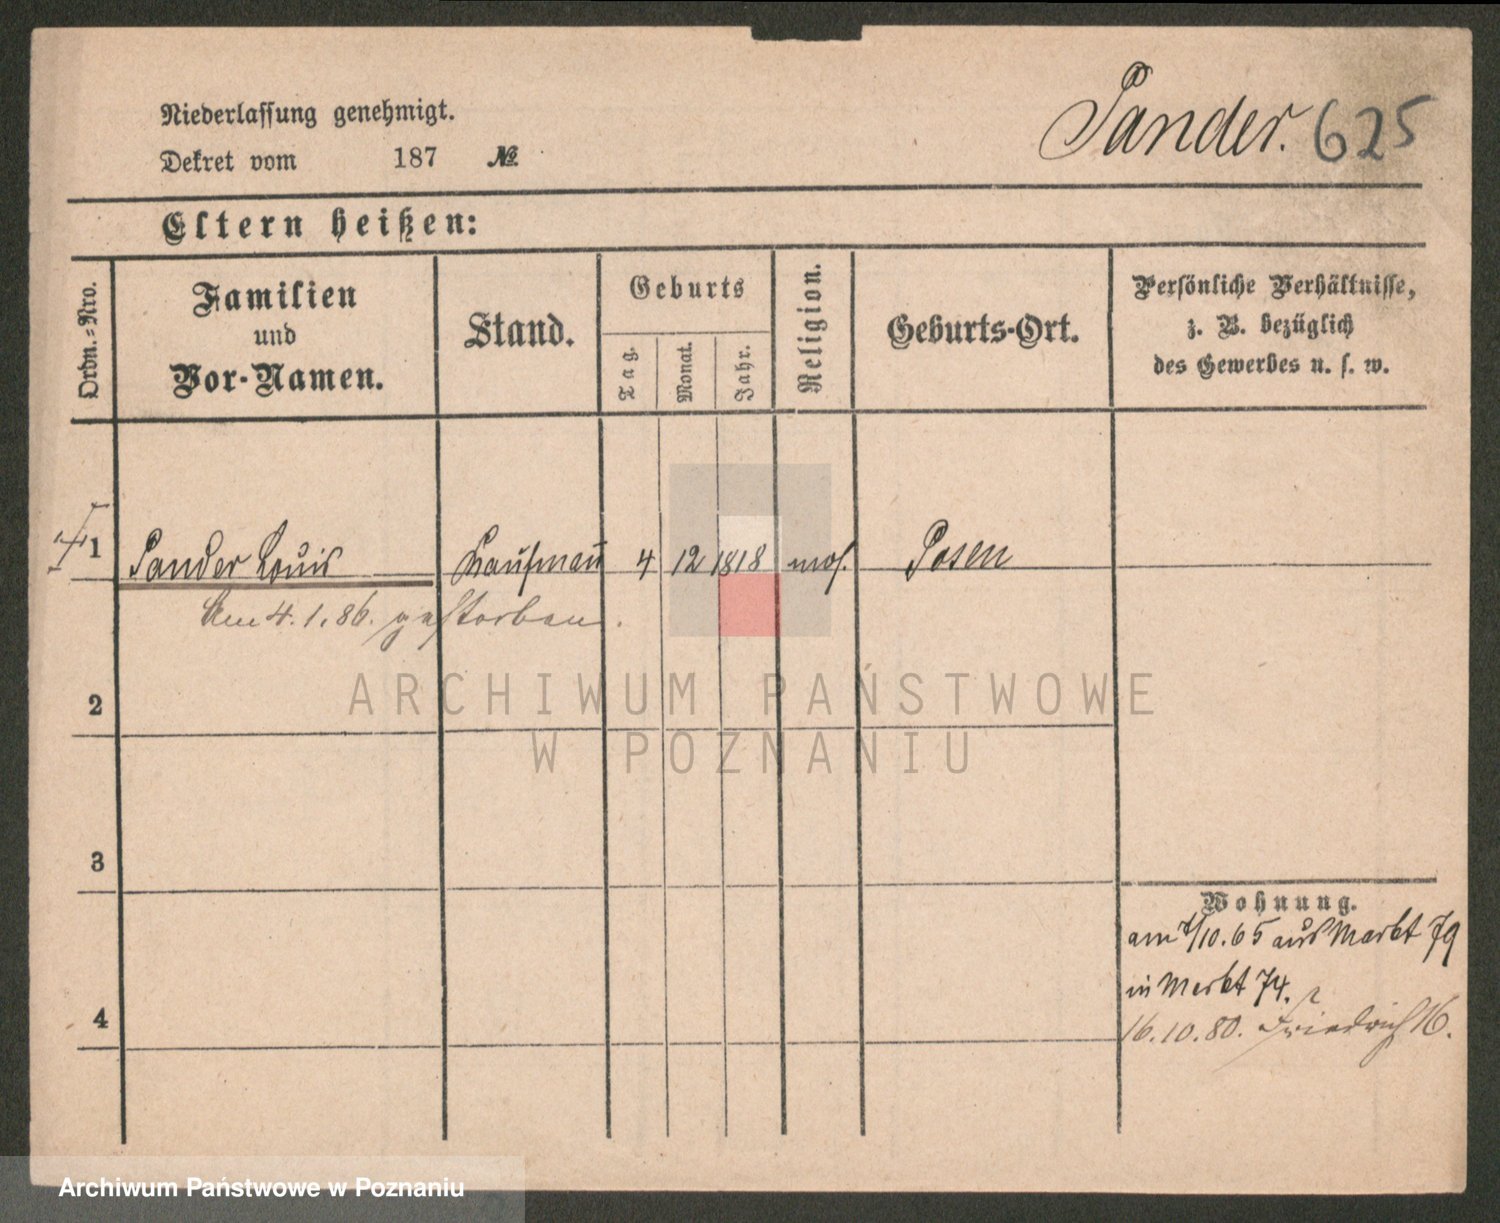 Niederlassung genehmigt.
Dekret vom 187 №
Sander. 625
Eltern heißen:
Ordn.-Nro.
Familien
und
Vor-Namen.
Stand.
Geburts
Tag.
Monat.
Jahr.
Religion.
Geburts-Ort.
Persönliche Verhältnisse,
z. B. bezüglich
des Gewerbes u. s. w.
1 Sander Louis Kaufman̄ 4 12 1818 mos. Posen
Am 4.1.86. gestorben.
2
3
4
Wohnung.
am 7/10.65 aus Markt 79
in Markt 74.
16.10.80. Friedrich 16.
ARCHIWUM PAŃSTWOWE
W POZNANIU
Archiwum Państwowe w Poznaniu